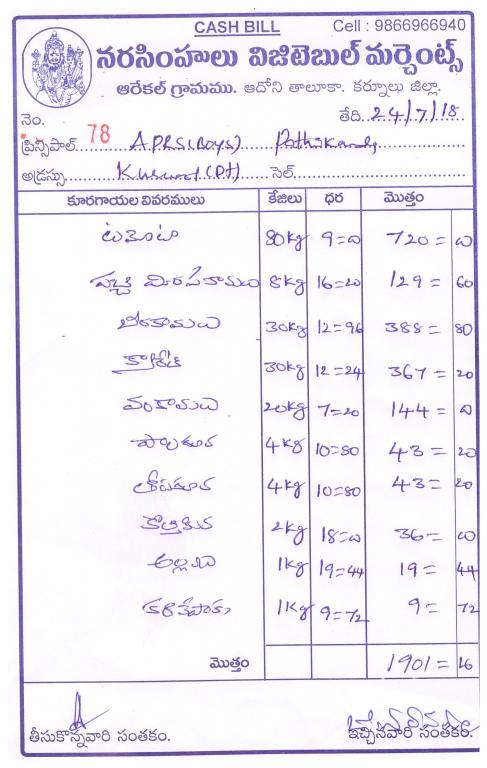 CASH BILL Cell : 9866966940
నరసింహలు విజిటెబుల్ మర్చెంట్స్
ఆరేకల్ గ్రామము. ఆదోని తాలూకా. కర్నూలు జిల్లా.
నెం. తేది. 24/7/18
ప్రిన్సిపాల్ 78 APRS(Boys)
అడ్రస్సు Kurnool(Dt) సెల్
కూరగాయల వివరములు కేజిలు ధర మొత్తం
టమోటా 80kg 9=0 720=0
పచ్చి మిరపకాయలు 8kg 16=20 129=60
బీరకాయలు 30kg 12=96 388=80
క్యారెట్ 30kg 12=24 367=20
వంకాయలు 20kg 7=20 144=0
పాలకూర 4kg 10=80 43=20
తోటకూర 4kg 10=80 43=20
కొత్తిమీర 2kg 18=0 36=0
అల్లం 1kg 19=44 19=44
కరివేపాకు 1kg 9=72 9=72
మొత్తం 1901=16
తీసుకొన్నవారి సంతకం. ఇచ్చినవారి సంతకం.